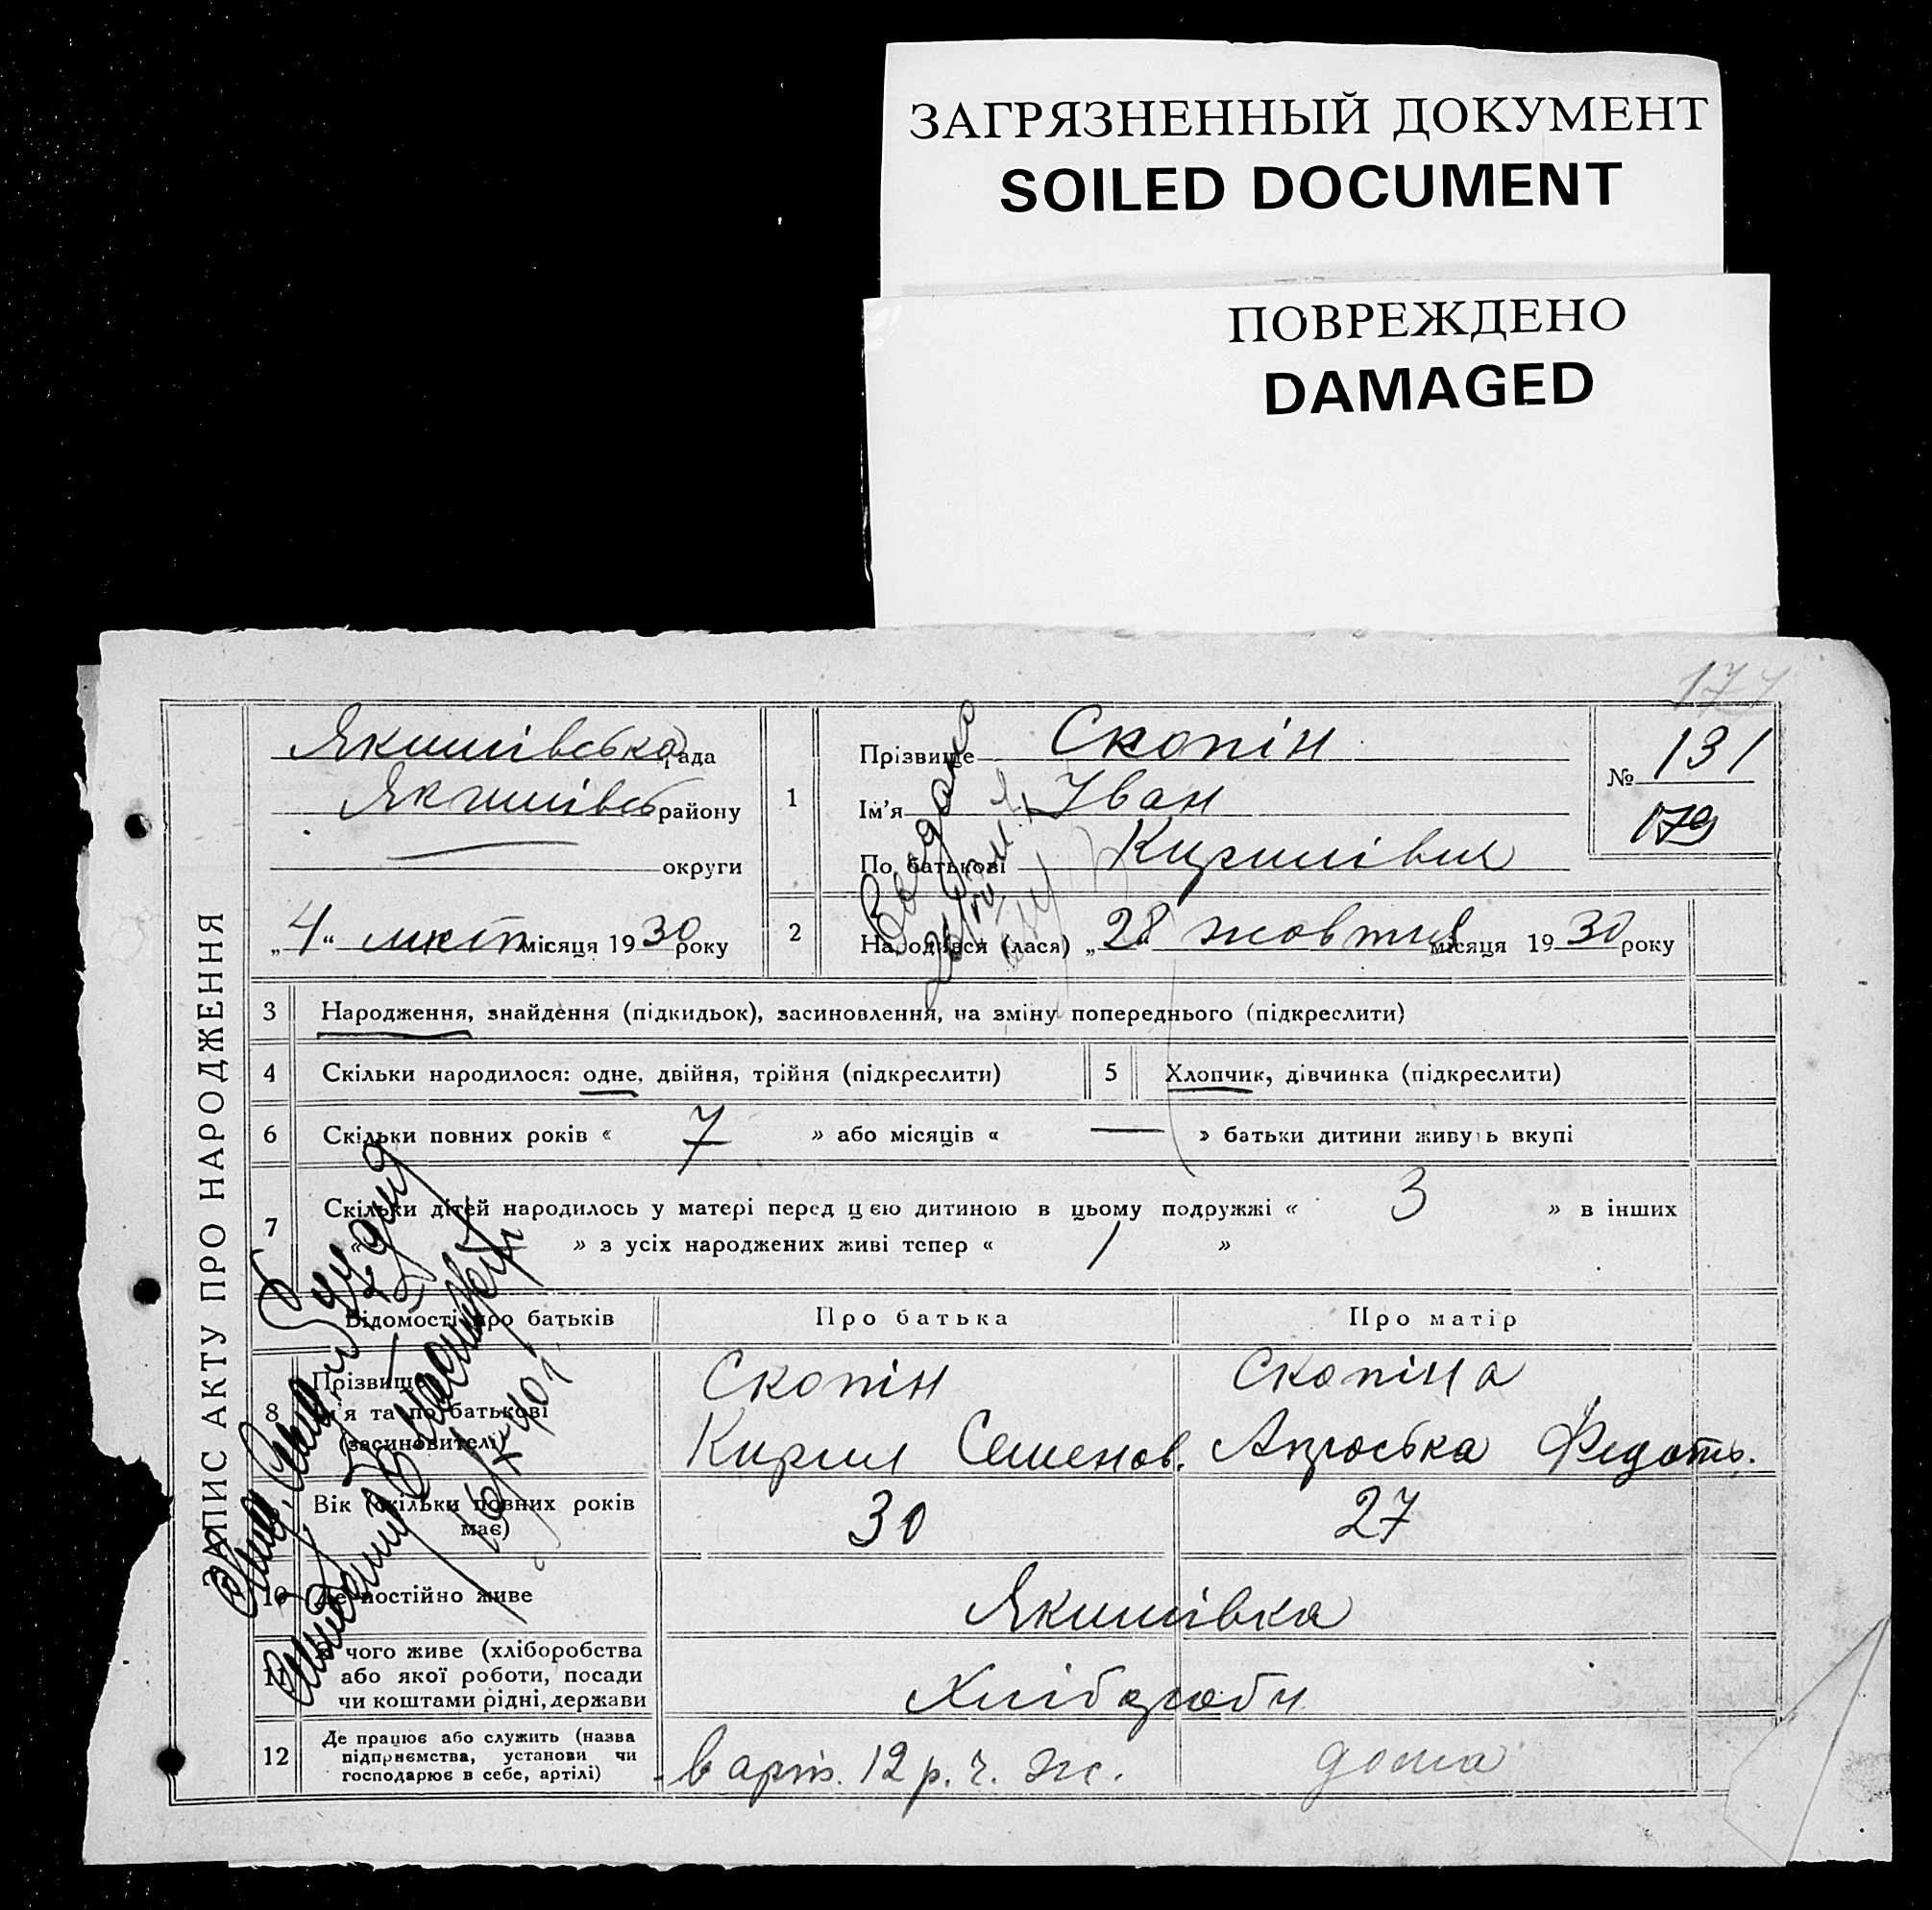 ЗАГРЯЗНЕННЫЙ ДОКУМЕНТ
SOILED DOCUMENT
ПОВРЕЖДЕНО
DAMAGED
177
ЗАПИС АКТУ ПРО НАРОДЖЕННЯ
Якимівська рада
Якимівськ району
округи
„4“ лист місяця 1930 року
1
Прізвище Скопін
Ім'я Іван
По батькові Кирилівич
№ 131
179
2
Народився (лася) „28“ жовтня місяця 1930 року
3 Народження, знайдення (підкидьок), засиновлення, на зміну попереднього (підкреслити)
4 Скільки народилося: одне, двійня, трійня (підкреслити)
5 Хлопчик, дівчинка (підкреслити)
6 Скільки повних років « 7 » або місяців « — » батьки дитини живуть вкупі
7 Скільки дітей народилось у матері перед цією дитиною в цьому подружжі « 3 » в інших
« » з усіх народжених живі тепер « 1 »
Відомості про батьків Про батька Про матір
8 Прізвище Ім'я та по батькові (засиновителі)
Скопін
Кирил Семенов.
Скопіна
Апроська Федотів.
Вік (скільки повних років має) 30 27
10 Де постійно живе Якимівка
11 З чого живе (хліборобства
або якої роботи, посади
чи коштами рідні, держави
Хлібороби
12 Де працює або служить (назва
підприємства, установи чи
господарює в себе, артілі)
в арт. 12 р. ч. ж.
дома